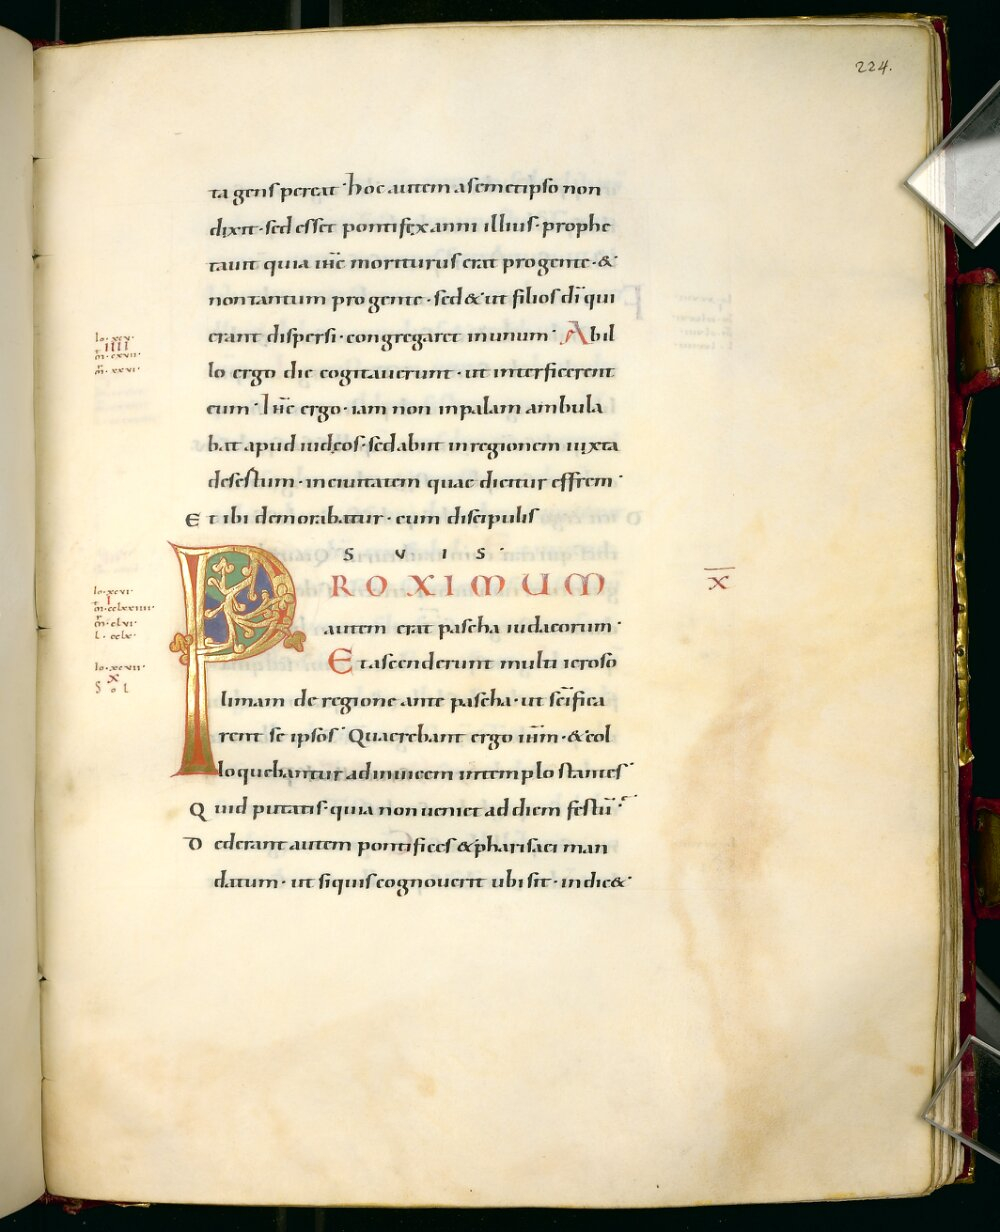 224.
ta gens pereat· hoc autem a semetipso non
dixit· sed esset pontifex anni illius· prophe
tauit quia ihc moriturus erat pro gente· &
non tantum pro gente· sed & ut filios di qui
erant dispersi· congregaret in unum· Abil
lo ergo die cogitauerunt· ut interficerent
eum· Ihc ergo· iam non in palam ambula
bat apud iudeos· sed abiit in regionem iuxta
desestum· in ciuitatem quae dicitur effrem·
Et ibi demorabatur· cum discipulis
SVIS·
PROXIMUM
autem erat pascha iudaeorum·
Et ascenderunt multi ieroso
limam de regione ante pascha· ut scifica
rent se ipsos· Quaerebant ergo ihm· & col
loquebantur ad inuicem in templo stantes·
Quid putatis· quia non ueniet ad diem festu·
Dederant autem pontifices & pharisaei man
datum· ut siquis cognouerit ubi sit· indic&·
Io·xcv·
IIII
m·cxxii·
m·xxvi·
Io·xcvi·
I
m·cclxxiiii·
m·clvi·
L·cclx·
Io·xcvii·
X
Sol
X